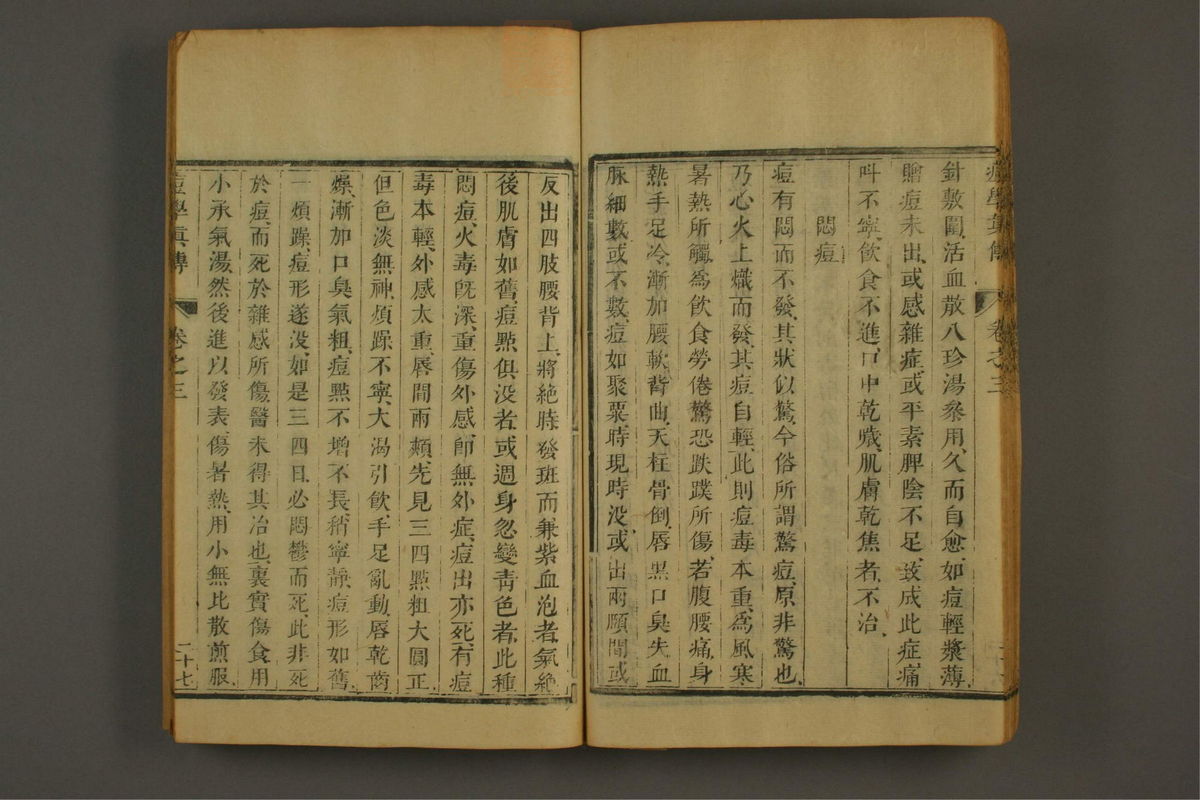 痘學眞傳 卷之三
針敷圍活血散八珍湯參用久而自愈如痘輕漿薄
贈痘未出或感雜症或平素脾陰不足致成此症痛
呌不寧飲食不進口中乾燥肌膚乾焦者不治
悶痘
痘有悶而不發其狀似驚今俗所謂驚痘原非驚也
乃心火上熾而發其痘自輕此則痘毒本重爲風寒
暑熱所觸爲飲食勞倦驚恐跌蹼所傷若腹腰痛身
熱手足冷漸加腰軟背曲天柱骨倒唇黑口臭失血
脉細數或不數痘如聚粟時現時没或出兩頤間或
反出四肢腰背上將絶時發斑而兼紫血泡者氣絶
後肌膚如舊痘㸃俱没者或週身忽變靑色者此種
悶痘火毒旣深重傷外感卽無外症痘出亦死有痘
毒本輕外感太重唇間兩頰先見三四㸃粗大圓正
但色淡無神煩躁不寧大渴引飲手足亂動唇乾齒
燥漸加口臭氣粗痘㸃不增不長稍寧靜痘形如舊
一煩躁痘形遂没如是三四日必悶鬱而死此非死
於痘而死於雜感所傷醫未得其冶也裏實傷食用
小承氣湯然後進以發表傷暑熱用小無比散煎服
痘學眞傳 卷之三 二十七